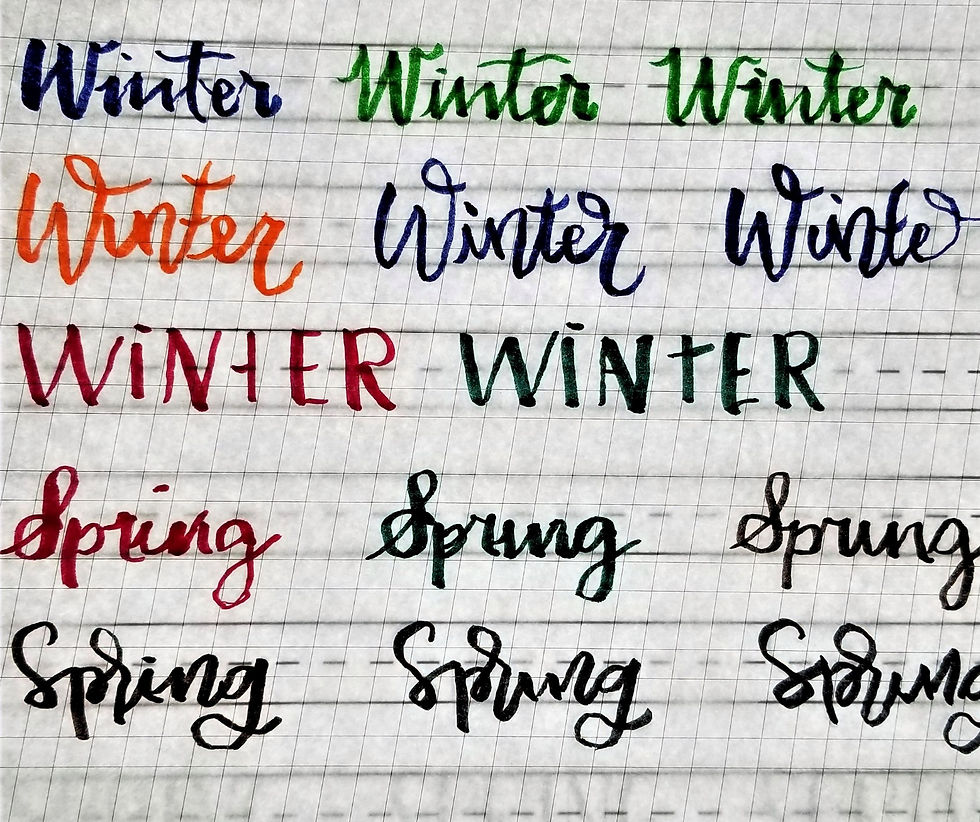 Winter Winter Winter
Winter Winter Winte
WiNtER WiNtER
Spring Sprıng Sprıng
Spring Sprıng Sprıng